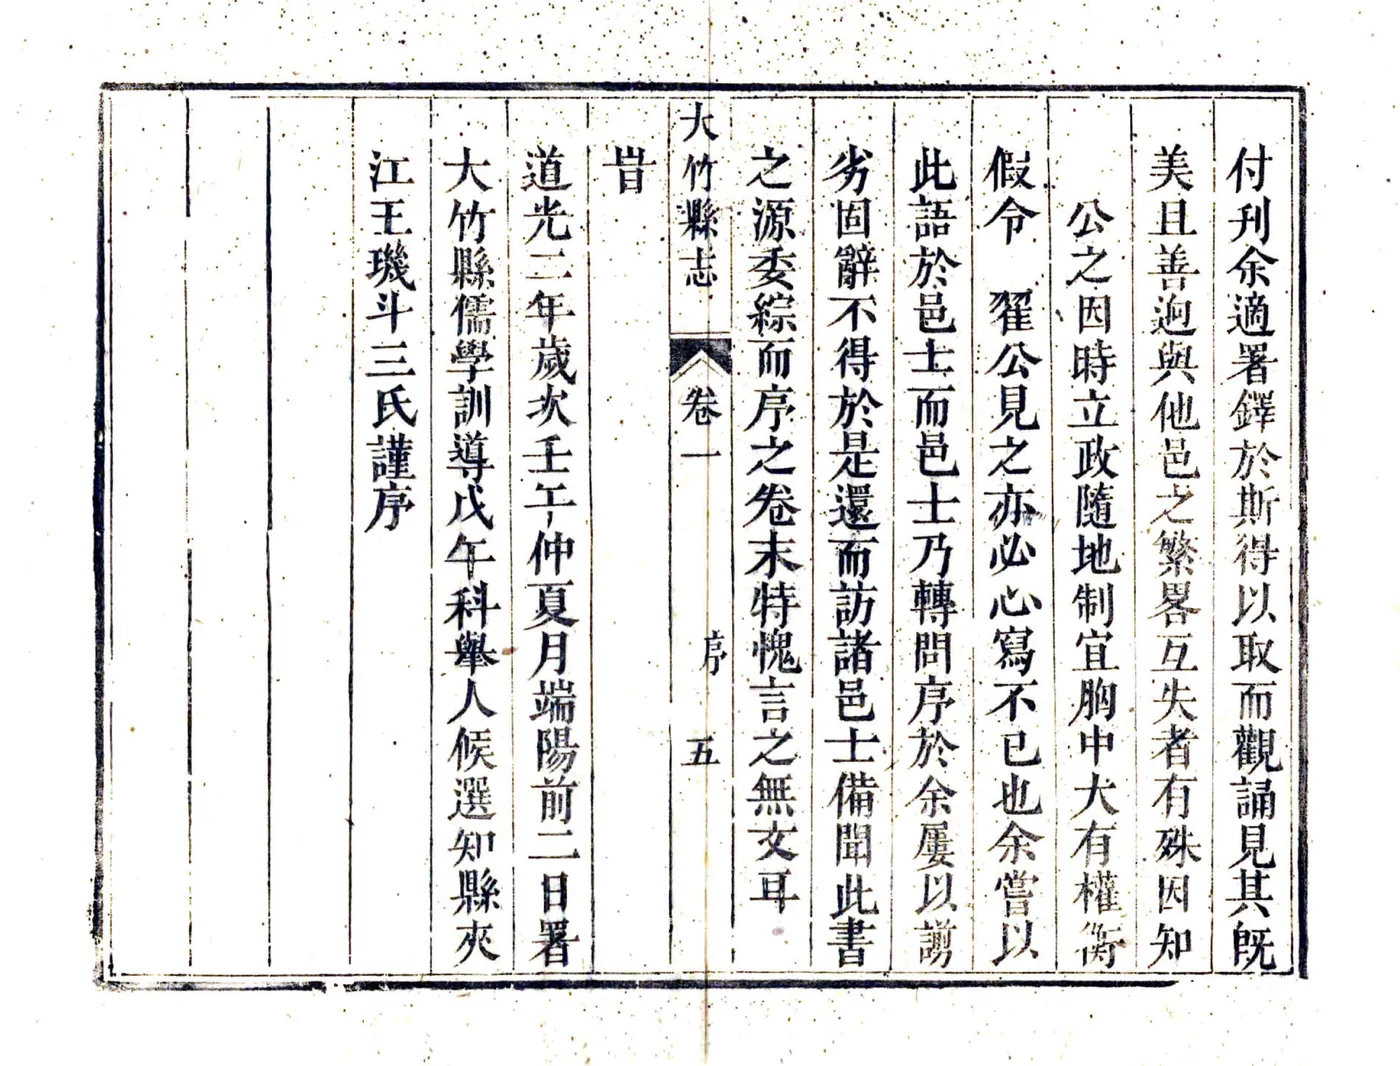 付刊余適署鐸於斯得以取而觀誦見其旣
美且善逈與他邑之繁畧互失者有殊因知
公之因時立政隨地制宜胸中大有權衡
假令　翟公見之亦必心寫不已也余嘗以
此語於邑士而邑士乃轉問序於余屢以謭
劣固辭不得於是還而訪諸邑士備聞此書
之源委綜而序之卷末特愧言之無文耳
旹
大竹縣志　卷一　序　五
道光二年歲次壬午仲夏月端陽前二日署
大竹縣儒學訓導戊午科舉人候選知縣夾
江王璣斗三氏謹序